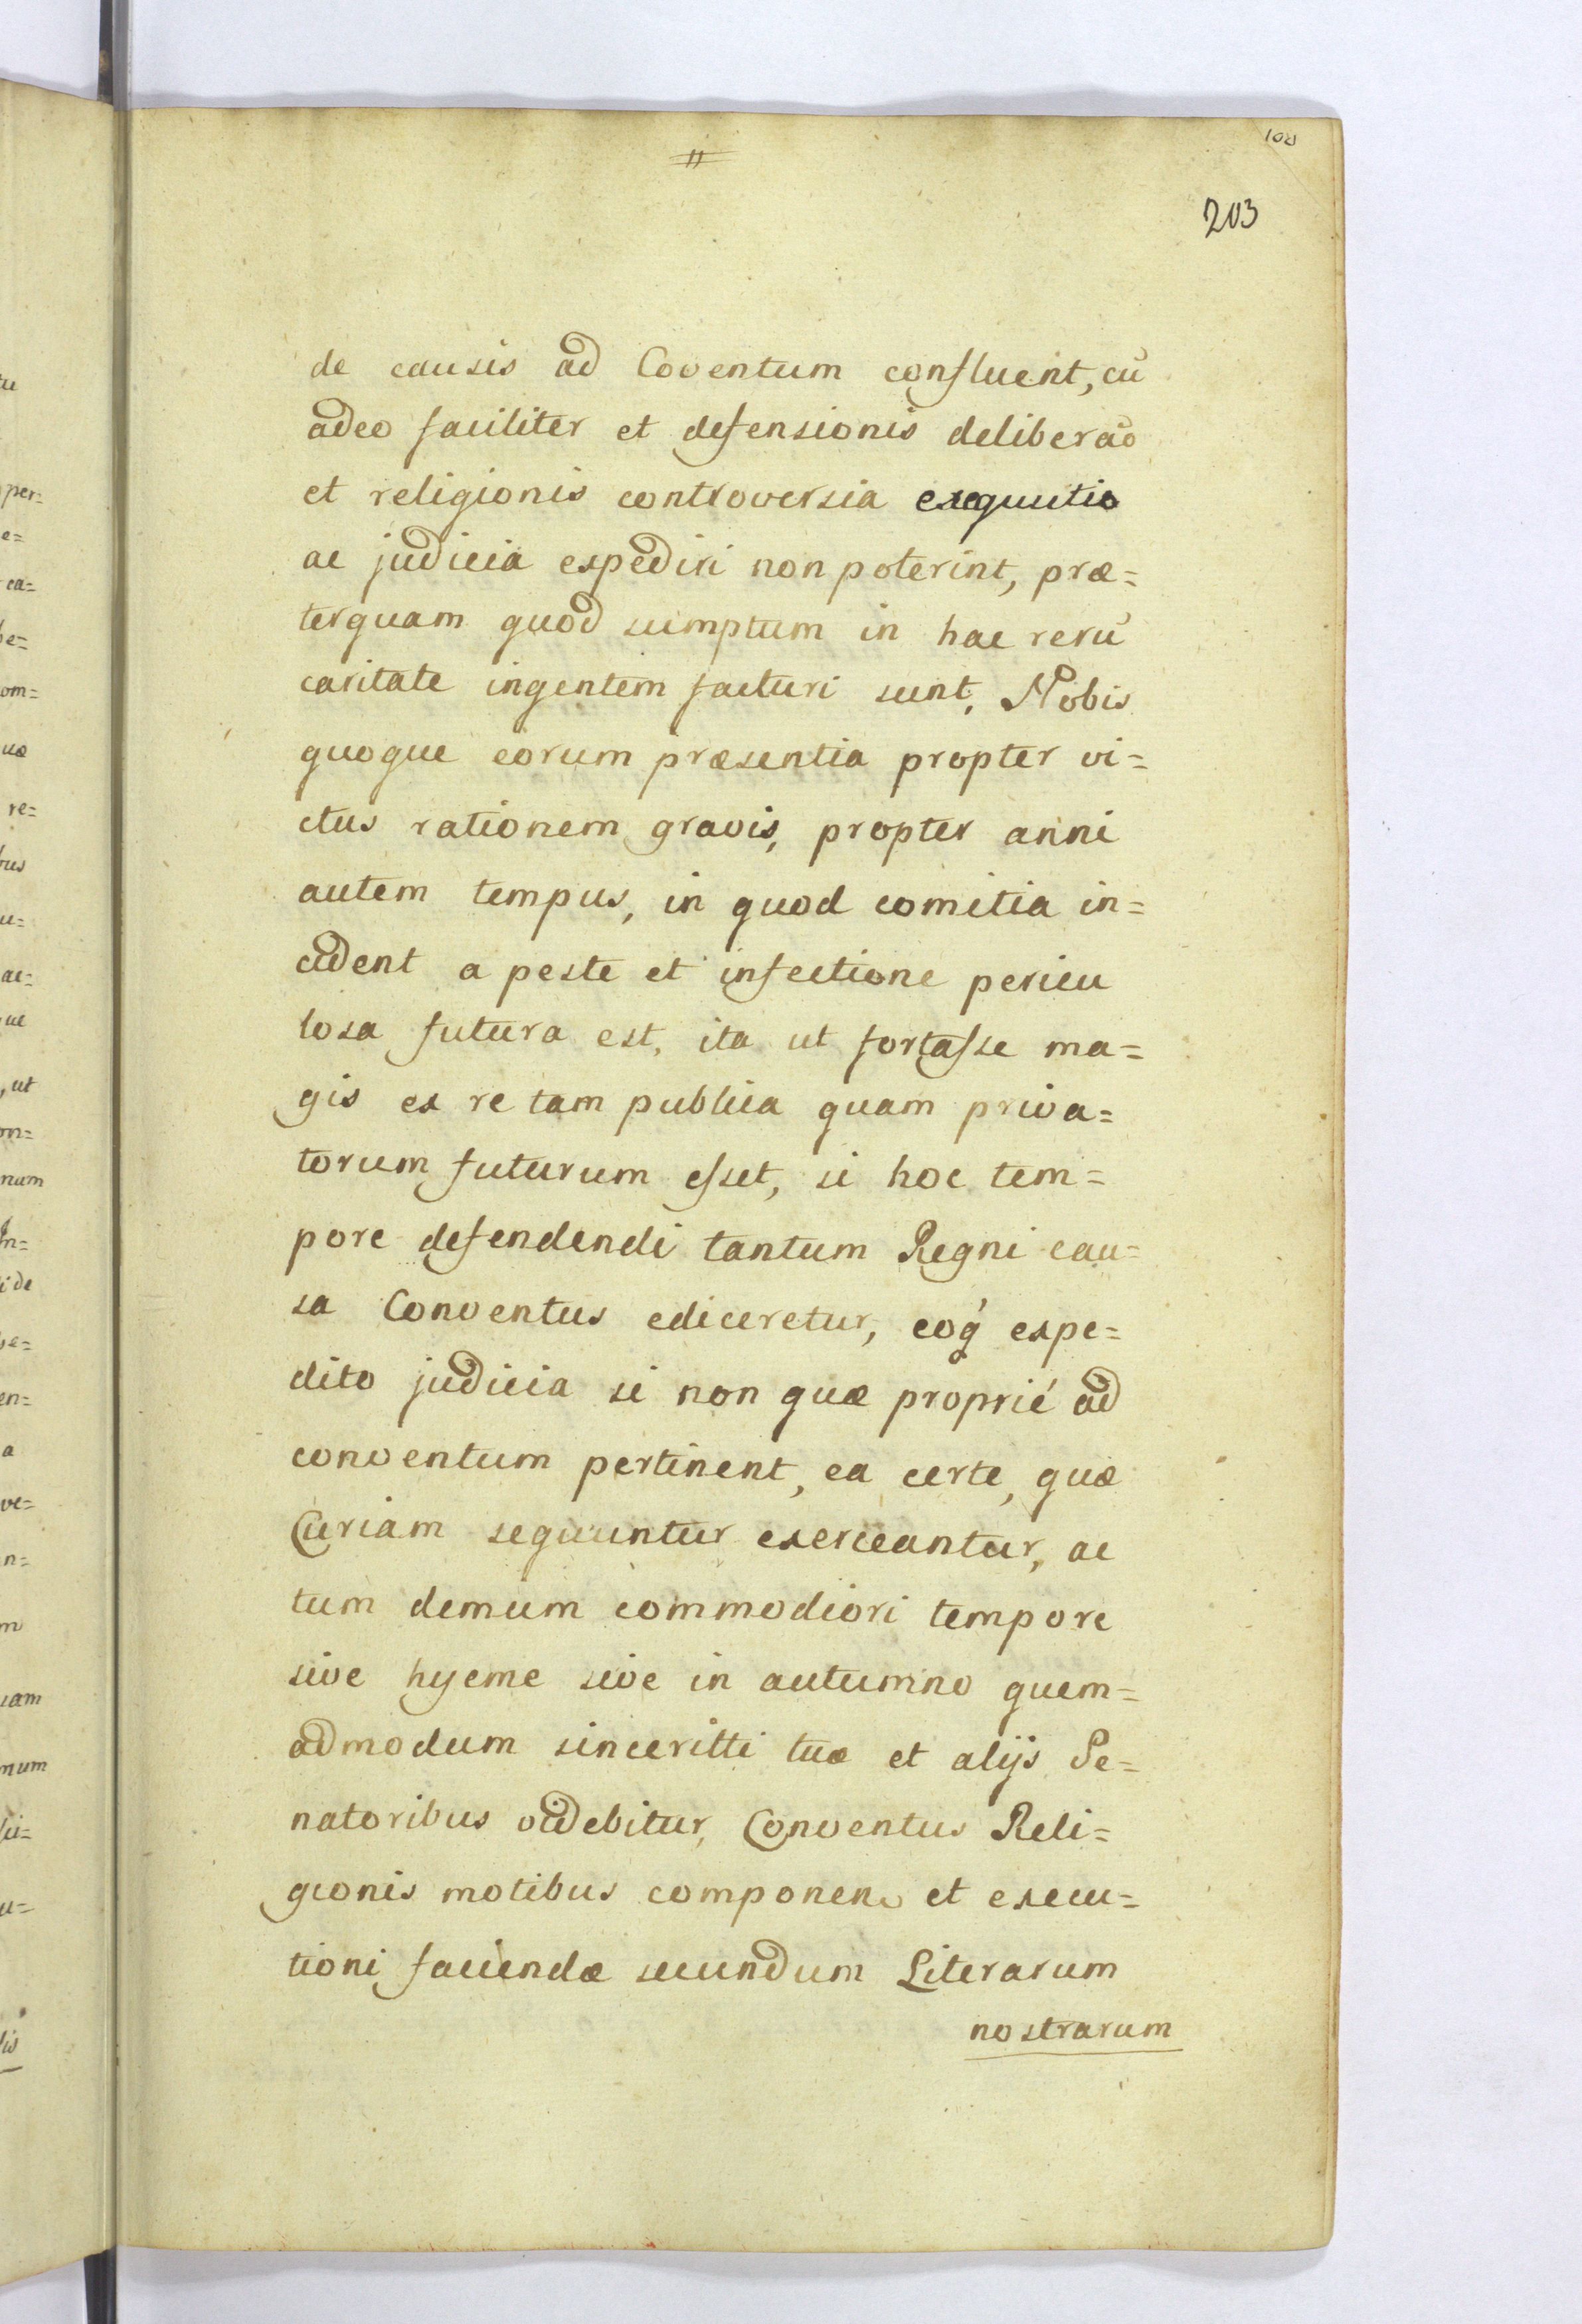 203
de causis ad Coventum confluent, cū
adeo faciliter et defensionis deliberāo
et religionis controversia exequutio
ac judicia expediri non poterint, præ=
terquam quod sumptum in hac rerū
caritate ingentem facturi sunt, Nobis
quoque eorum præsentia propter vi=
ctus rationem gravis, propter anni
autem tempus, in quod comitia in=
cident a peste et infectione pericu
losa futura est, ita ut fortasse ma=
gis ex re tam publica quam priva=
torum futurum esset, si hoc tem=
pore defendendi tantum Regni cau=
sa Conventus ediceretur, eoq́ expe=
dito judicia si non quæ proprié ad
conventum pertinent, ea certe, quæ
Curiam sequuntur exerceantur, ac
tum demum commodiori tempore
sive hyeme sive in autumno quem=
admodum sinceritti tuæ et alijs Se=
natoribus videbitur, Conventus Reli=
gionis motibus componen et execu=
tioni faciendæ secundum Literarum
nostrarum